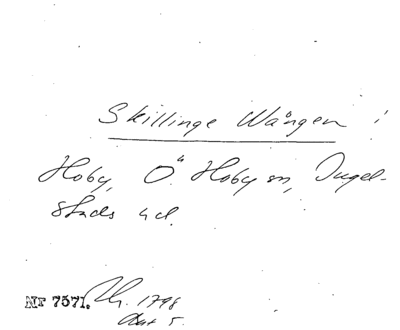 Skillinge Wången i
Hoby, Ö. Hoby sn, Ingel-
stads hd.
Nr 7571. Lk. 1798
Akt 5.